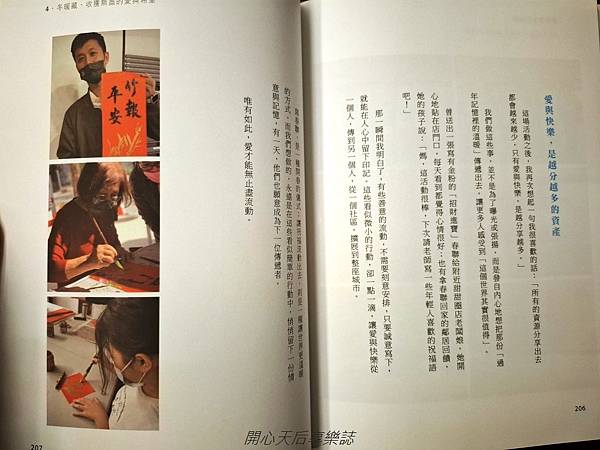 愛與快樂，是越分越多的資產
這場活動之後，我再次想起一句我很喜歡的話：「所有的資源分享出去
都會越來越少，只有愛與快樂，是越分享越多。」
我們做這些事，並不是為了曝光或張揚，而是發自內心地想把那份「過
年記憶裡的溫暖」傳遞出去，讓更多人感受到「這個世界其實很值得」。
曾送出一張寫有金粉的「招財進寶」春聯給附近甜甜圈店老闆娘，她開
心地貼在店門口，每天看到都覺得心情很好；也有拿春聯回家的鄰居回饋，
她的孩子說：「媽，這活動很棒，下次請老師寫一些年輕人喜歡的祝福語
吧！」
那一瞬間我明白了，有些善意的流動，不需要刻意安排，只要誠意寫下，
就能在人心中留下印記。這些看似微小的行動，卻一點一滴，讓愛與快樂從
一個人，傳到另一個人，從一個社區，擴展到整座城市。
206
4、冬暖藏，收穫無盡的愛與希望
的方式。而我們想做的，永遠是在這些看似簡單的行動中，悄悄留下一份情
意與記憶，有一天，他們也願意成為下一位傳遞者。
唯有如此，愛才能無止盡流動。
竹報
平安
207
開心天后享樂誌